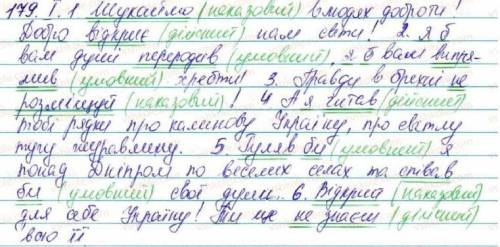 179. I. 1 Шукаймо (наказовий) в людях доброти!
Добро відкриє (дійсний) нам світи! 2. я б
вам душі переродив (умовний), я б вам випря-
мив (умовний) хребти! 3. Правду в брехні не
розмішуй (наказовий)! 4 А я читав (дійсний)
тобі рядки про калинову Україну, про світлу
тугу журавлину. 5. Гуляв би (умовний) я
понад Дніпром по веселих селах та співав
би (умовний) свої думи.. 6. Відкрий (наказовий)
для себе Україну! Ти ще не знаєш (дійсний)
всю її